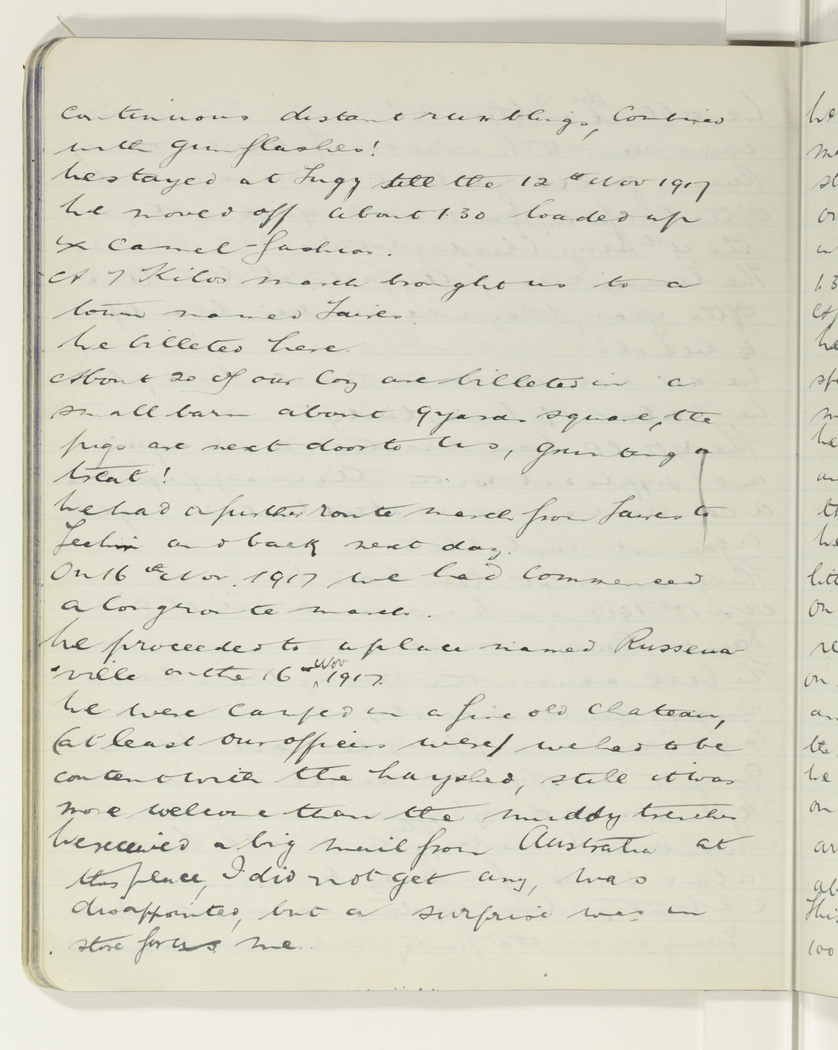 continuous distant rumblings, Combined
with Gun flashes!
We stayed at Lugy till the 12th Nov 1917
We moved off about 1.30 loaded up
in Camel-fashion.
A 7 Kilos march brought us to a
town named Laires.
We billeted here.
About 20 of our Coy are billeted in a
small barn about 9 yards square, the
pigs are next door to us, grunting a
treat!
We had a further route march from Laires to
and back next day.
On 16th Nov. 1917 we had commenced
a long route march.
We proceeded to a place named Russeau
-ville on the 16th Nov 1917.
We were camped in a fine old chateau,
(at least our officers were) we had to be
content with the hayshed, still it was
more welcome than the muddy trenches
We received a big mail from Australia at
this place, I did not get any, was
disappointed, but a surprise was in
store for us me.